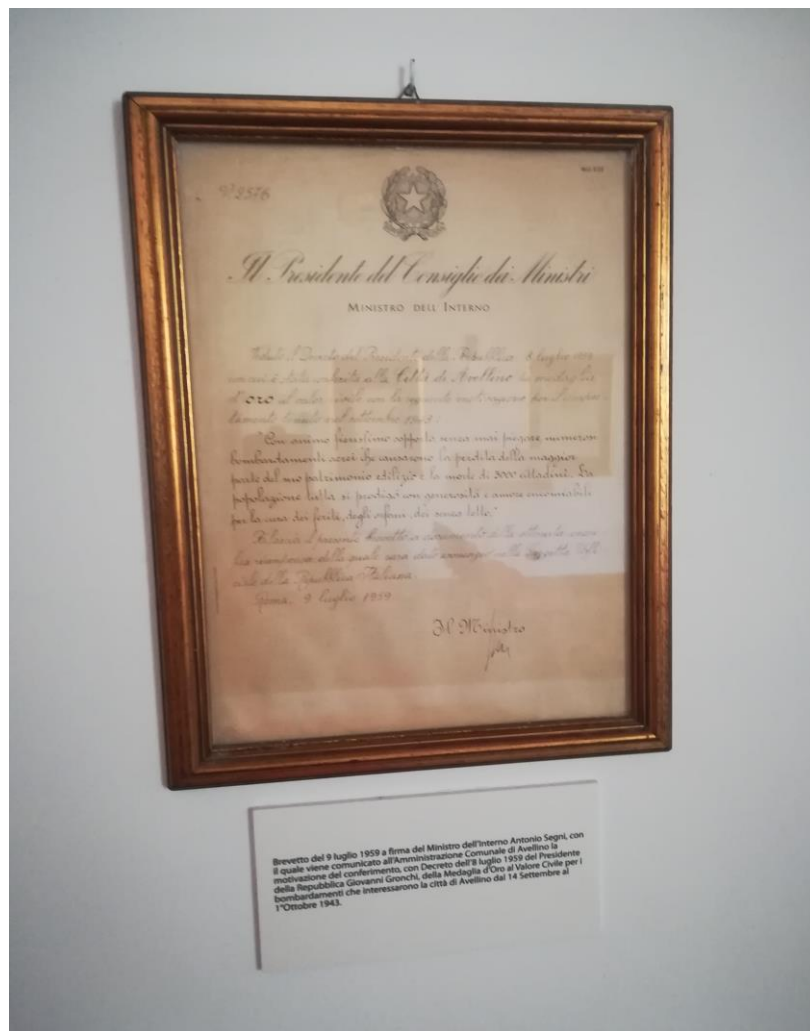 N° 2576
Il Presidente del Consiglio dei Ministri
MINISTRO DELL'INTERNO
Veduto il Decreto del Presidente della Repubblica 8 luglio 1959
con cui è stata conferita alla Città di Avellino la medaglia
d'oro al valor civile con la seguente motivazione per il
tenuto nel settembre 1943:
"Con animo fierissimo sopportò senza mai piegare numerosi
bombardamenti aerei che causarono la perdita della maggior
parte del suo patrimonio edilizio e la morte di 3000 cittadini. La
popolazione tutta si prodigò con generosità e amore encomiabili
per la cura dei feriti, degli orfani, dei senza tetto."
Rilascia il presente Brevetto a documento della
ricompensa, della quale sarà dato nella Gazzetta
della Repubblica Italiana.
Roma, 9 luglio 1959
Il Ministro
Brevetto del 9 luglio 1959 a firma del Ministro dell'Interno Antonio Segni, con
il quale viene comunicato all'Amministrazione Comunale di Avellino la
motivazione del conferimento, con Decreto dell'8 luglio 1959 del Presidente
della Repubblica Giovanni Gronchi, della Medaglia d'Oro al Valore Civile per i
bombardamenti che interessarono la città di Avellino dal 14 Settembre al
1°Ottobre 1943.